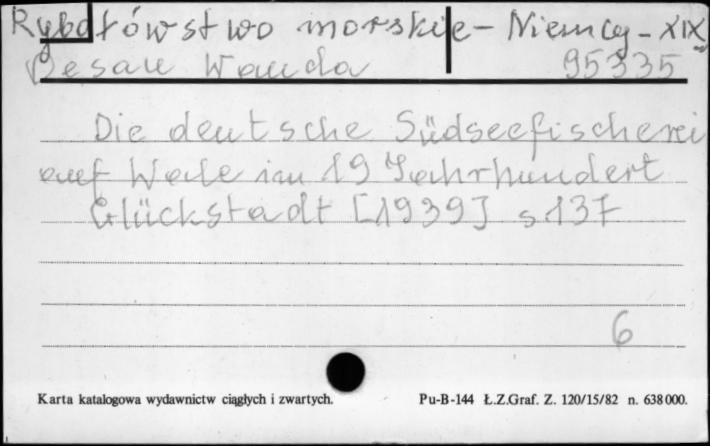 Rybołówstwo morskie - Niemcy - XIX w
Wanda 95335
Die deutsche Südseefischerei
auf Wale im 19 Jahrhundert
Glückstadt [1939] s 137
6
Karta katalogowa wydawnictw ciągłych i zwartych. Pu-B-144 Ł.Z.Graf. Z. 120/15/82 n. 638 000.